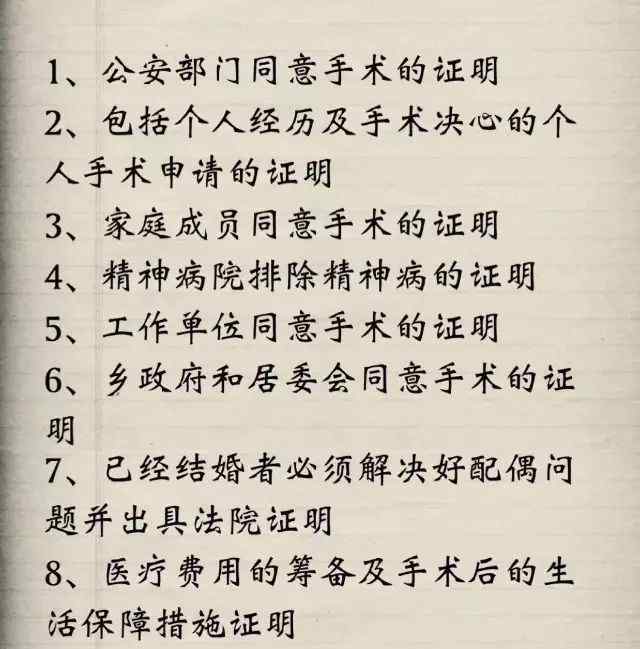 1、公安部门同意手术的证明
2、包括个人经历及手术决心的个
人手术申请的证明
3、家庭成员同意手术的证明
4、精神病院排除精神病的证明
5、工作单位同意手术的证明
6、乡政府和居委会同意手术的证
明
7、已经结婚者必须解决好配偶问
题并出具法院证明
8、医疗费用的筹备及手术后的生
活保障措施证明